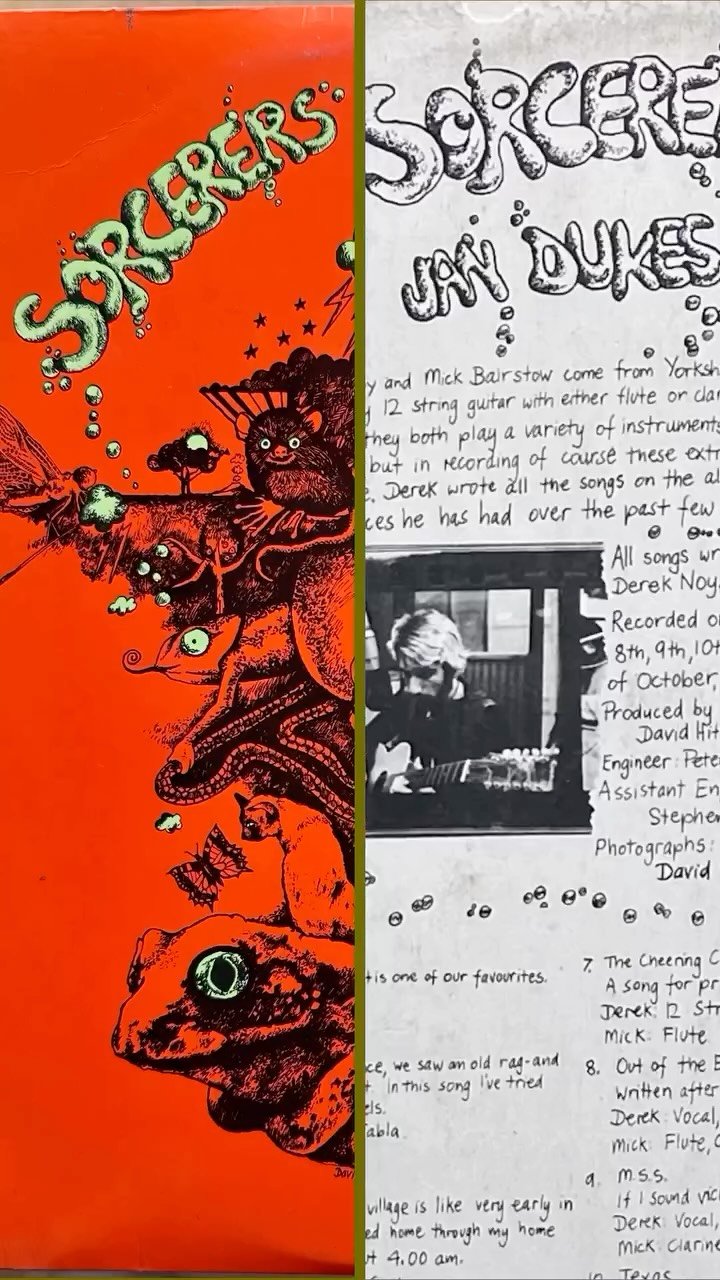 SORCERERS
SORCERE
JAN DUKES
y and Mick Bairstow come from Yorksh
y 12 string guitar with either flute or clar
they both play a variety of instruments
but in recording of course these extr
e. Derek wrote all the songs on the al
ces he has had over the past few
All songs wr
Derek Noy.
Recorded o
8th, 9th, 10t
of October,
Produced by
David Hit
Engineer: Pete
Assistant En
Stephen
Photographs:
David
t is one of our favourites.
ce, we saw an old rag-and
t. In this song I've tried
els.
Tabla
village is like very early in
ed home through my home
t 4.00 am.
7. The Cheering C
A song for pr
Derek: 12 Str
Mick: Flute
8. Out of the E
Written after
Derek: Vocal,
Mick: Flute, C
9. M.S.S.
If I sound vic
Derek: Vocal,
Mick: Clarine
10. Texas
Davi